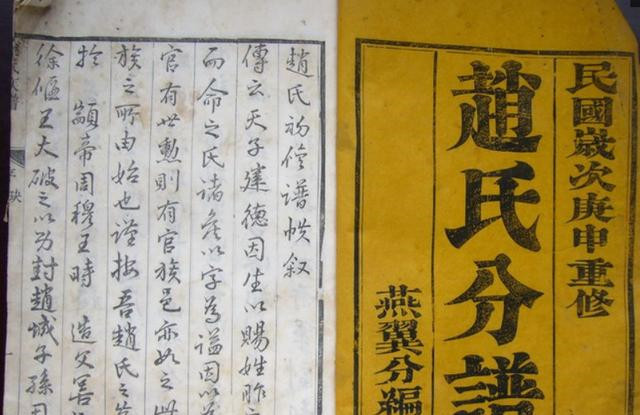 民國歲次庚申重修
趙氏分譜
燕翼分編
趙氏初修譜帙叙
傳云天子建德因生以賜姓胙之
而命之氏諸侯以字為謚因以為
官有世勲則有官族邑亦如之
族之所由始也謹按吾趙氏之
於顓帝周穆王時造父善
徐偃王大破之以功封趙城子孫因